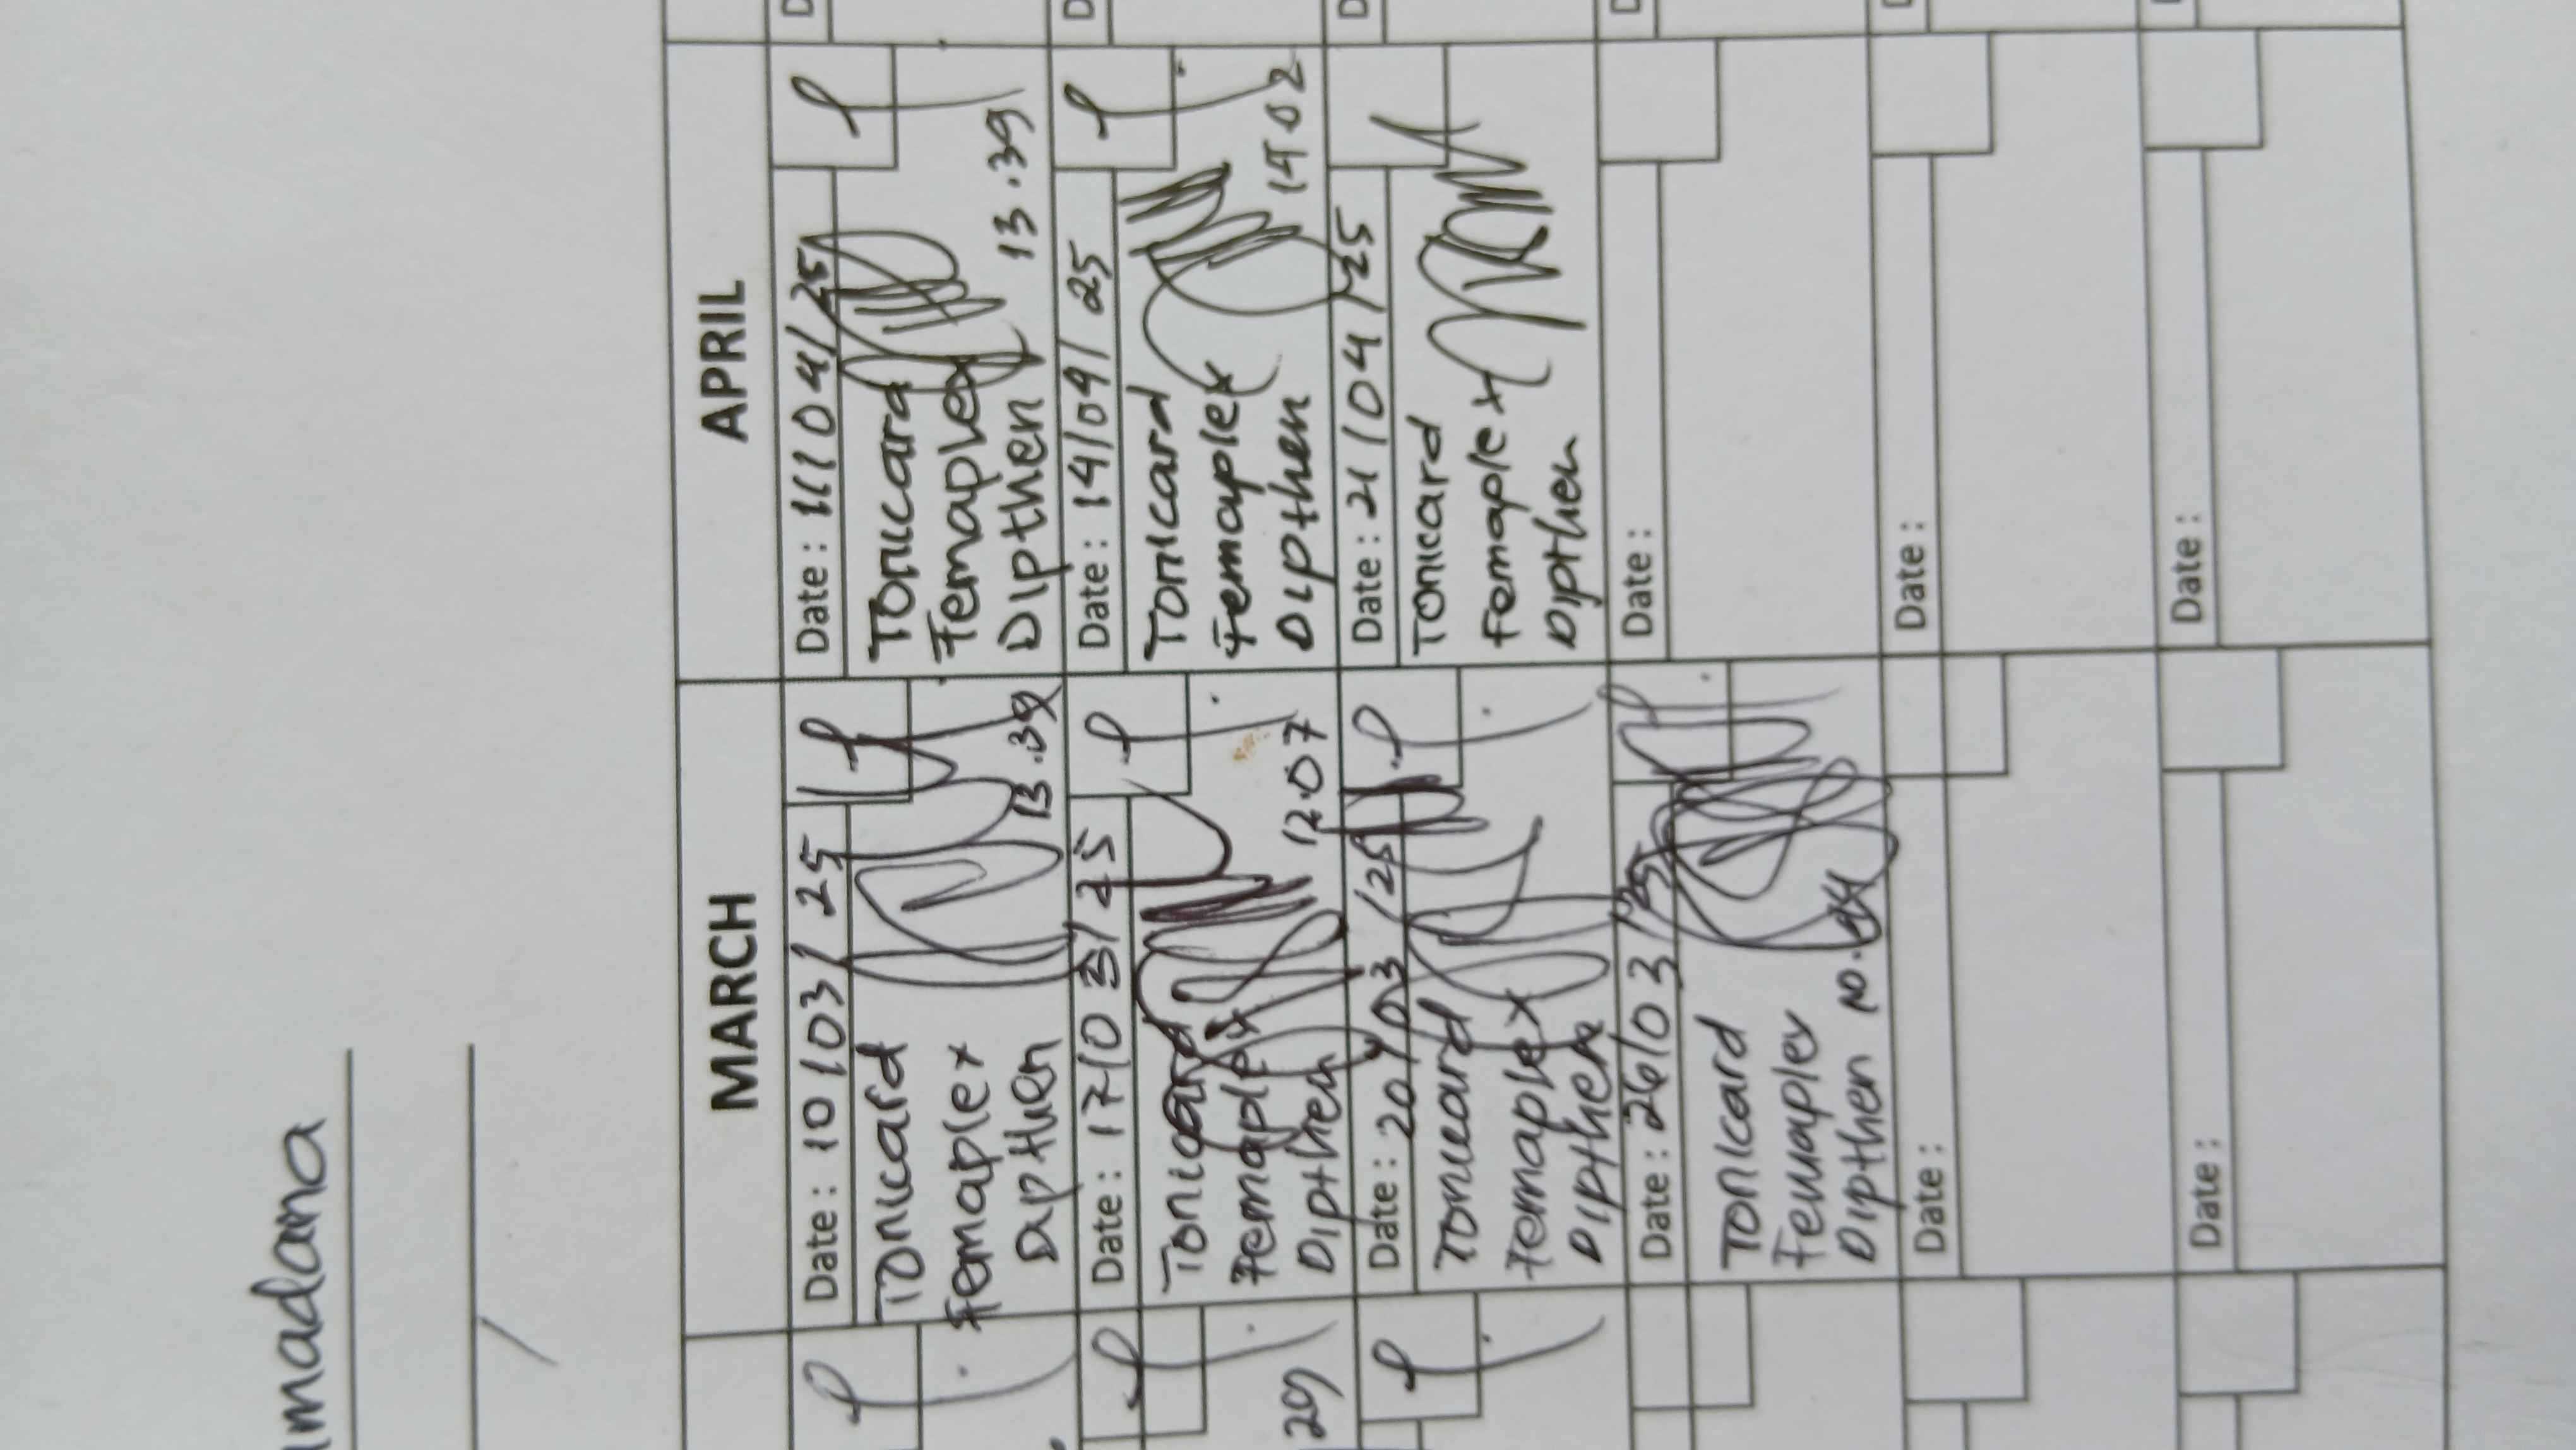 madana
MARCH
Date : 10/03/25
Tonicard
Femaplex
Dipthen 13.39
Date : 17/03/25
Tonicard
Femaplex
Dipthen 12.07
Date : 20/03/25
Tonicard
Femaplex
Dipthen
Date : 26/03/25
Tonicard
Femaplex
Dipthen
Date :
Date :
APRIL
Date : 11/04/25
Tonicard
Femaplex
Dipthen 13.39
Date : 14/04/25
Tonicard
Femaplex
Dipthen 14 02
Date : 21/04/25
Tonicard
Femaplex
Dipthen
Date :
Date :
Date :
29